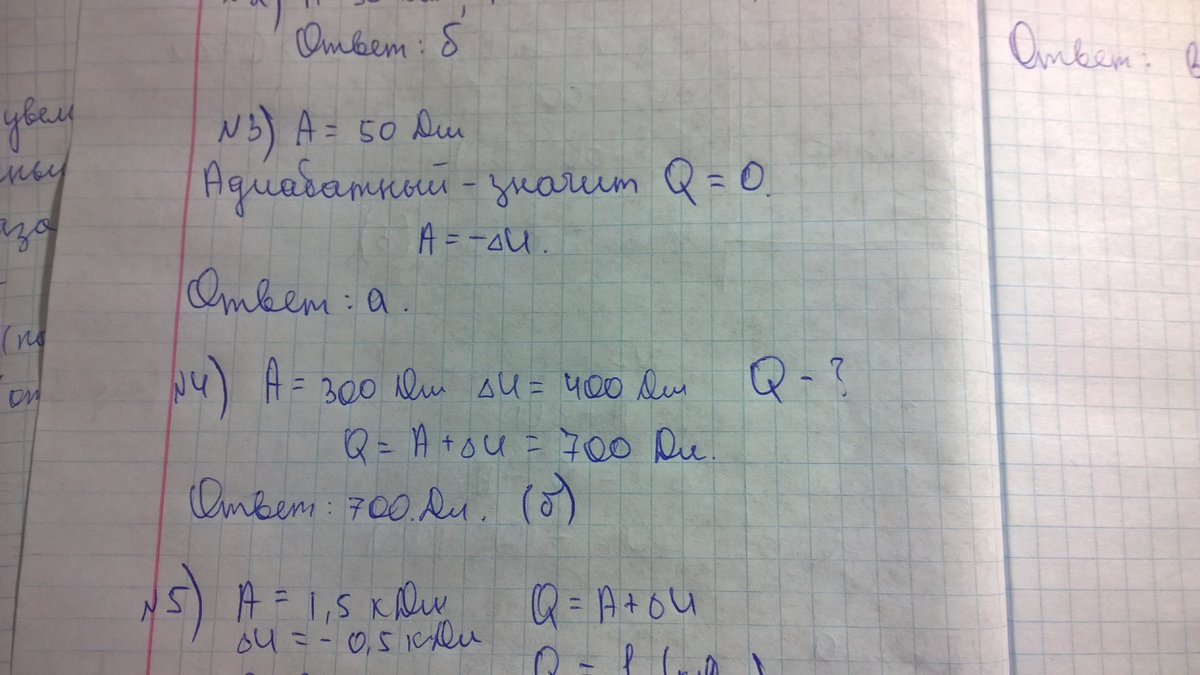 Ответ: б
№3) A = 50 Дж
Адиабатный - значит Q = 0.
A = -ΔU.
Ответ: а.
№4) A = 300 Дж ΔU = 400 Дж Q - ?
Q = A + ΔU = 700 Дж.
Ответ: 700 Дж. (б)
№5) A = 1,5 кДж Q = A + ΔU
ΔU = - 0,5 кДж
Ответ: